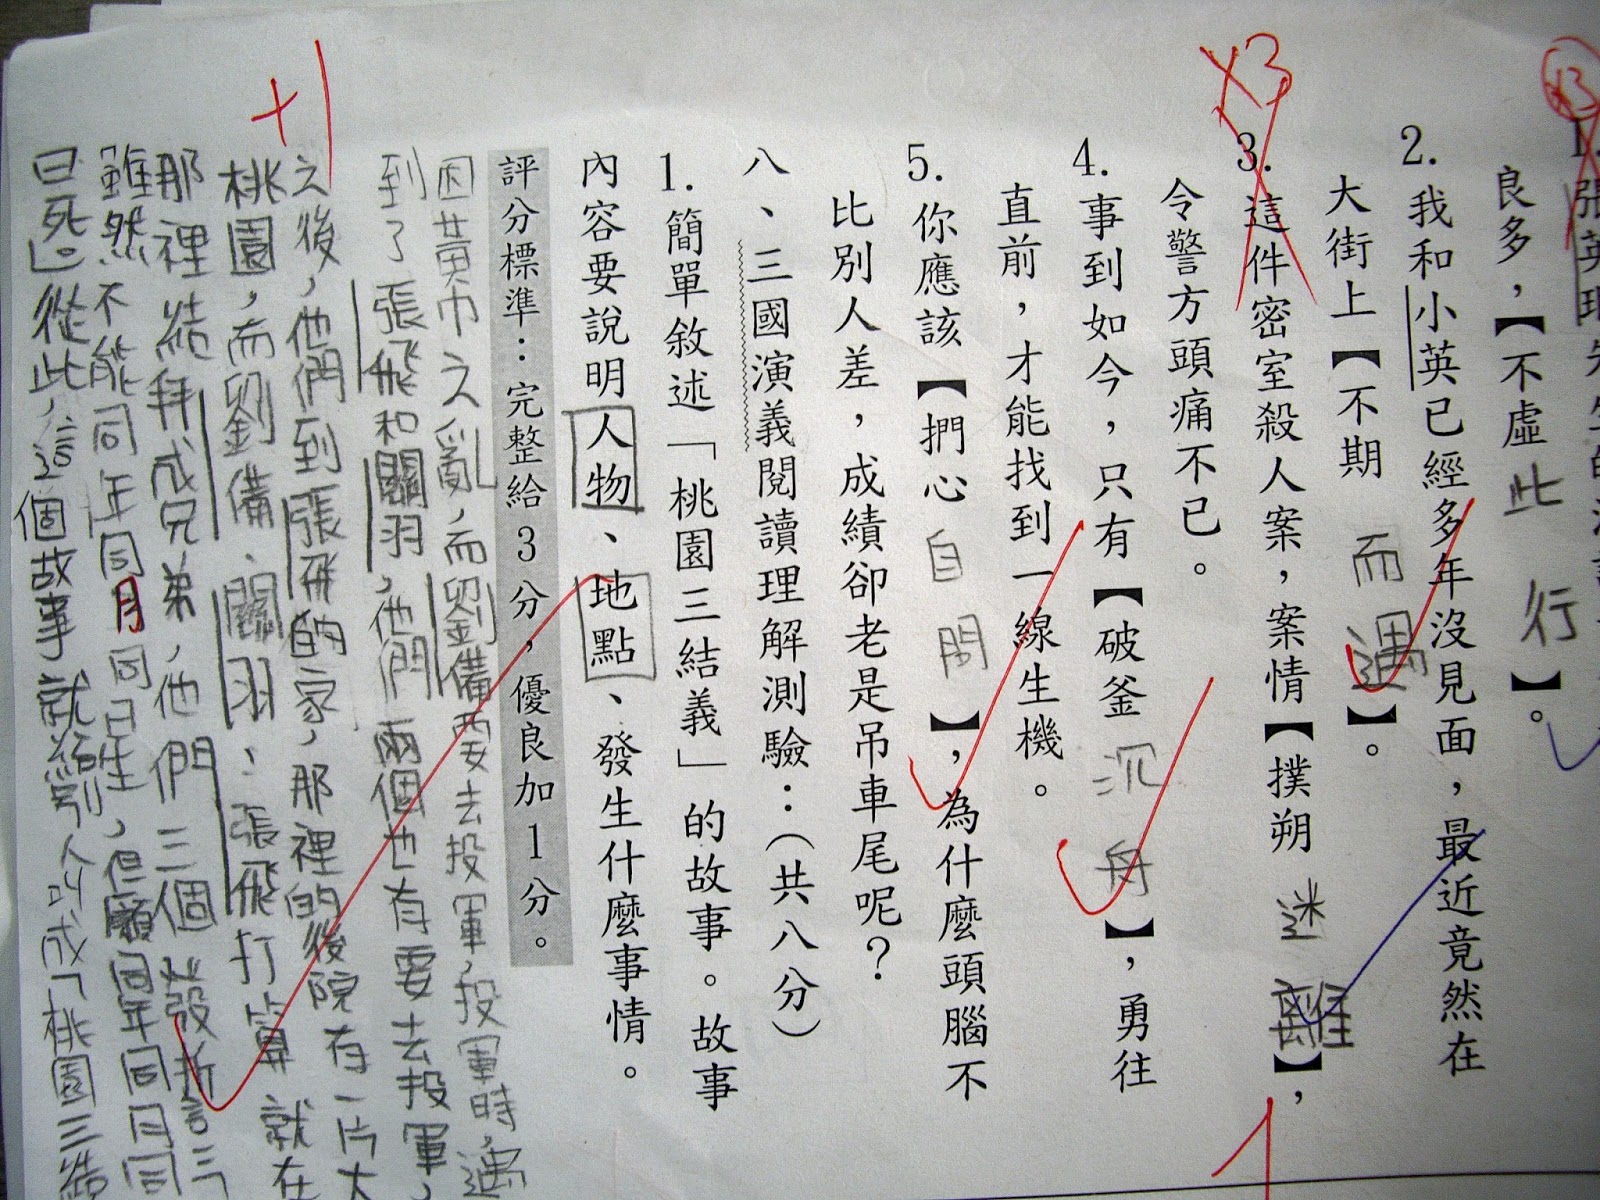 ×3
1.張英
良多，【不虛此行】。
2.我和小英已經多年沒見面，最近竟然在
大街上【不期而遇】。
×3
3.這件密室殺人案，案情【撲朔迷離】，
令警方頭痛不已。
4.事到如今，只有【破釜沉舟】，勇往
直前，才能找到一線生機。
5.你應該【捫心自問】，為什麼頭腦不
比別人差，成績卻老是吊車尾呢？
八、三國演義閱讀理解測驗：（共八分）
1.簡單敘述「桃園三結義」的故事。故事
內容要說明人物、地點、發生什麼事情。
評分標準：完整給3分，優良加1分。
+1
因黃巾之亂，而劉備要去投軍，投軍時，遇
到了張飛和關羽，他們兩個也有要去投軍，
之後，他們到張飛的家，那裡的後院有一片大
桃園，而劉備、關羽、張飛打算就在
那裡結拜成兄弟，他們三個發誓三
雖然不能同年同月同日生，但願同年同月同
日死」。從此，這個故事就給別人叫成「桃園三結